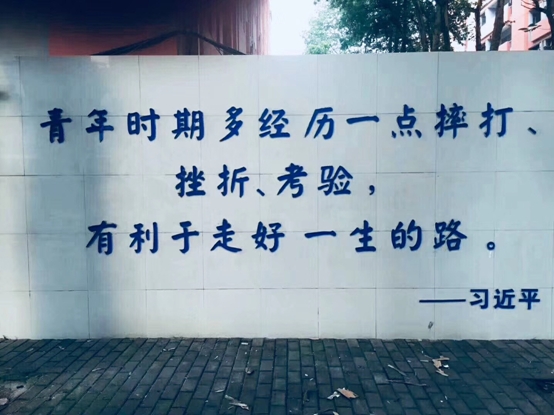 青年时期多经历一点摔打、
挫折、考验，
有利于走好一生的路。
——习近平